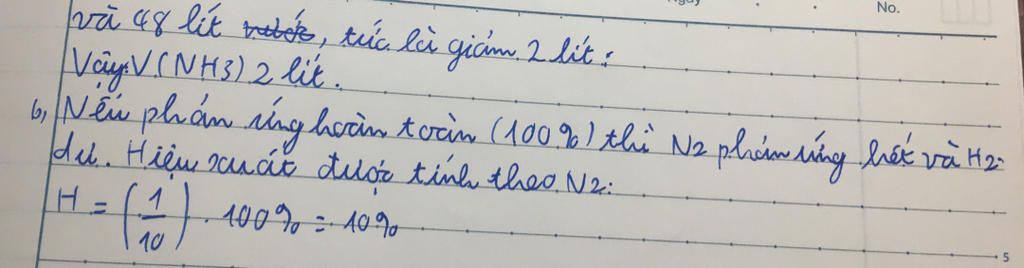 No.
và 48 lít nước, tức là giảm 2 lít:
Vậy V(NH3) 2 lít.
b, Nếu phản ứng hoàn toàn (100%) thì N2 phản ứng hết và H2
dư. Hiệu xuất được tính theo N2:
H = (1/10) . 100% = 10%
5